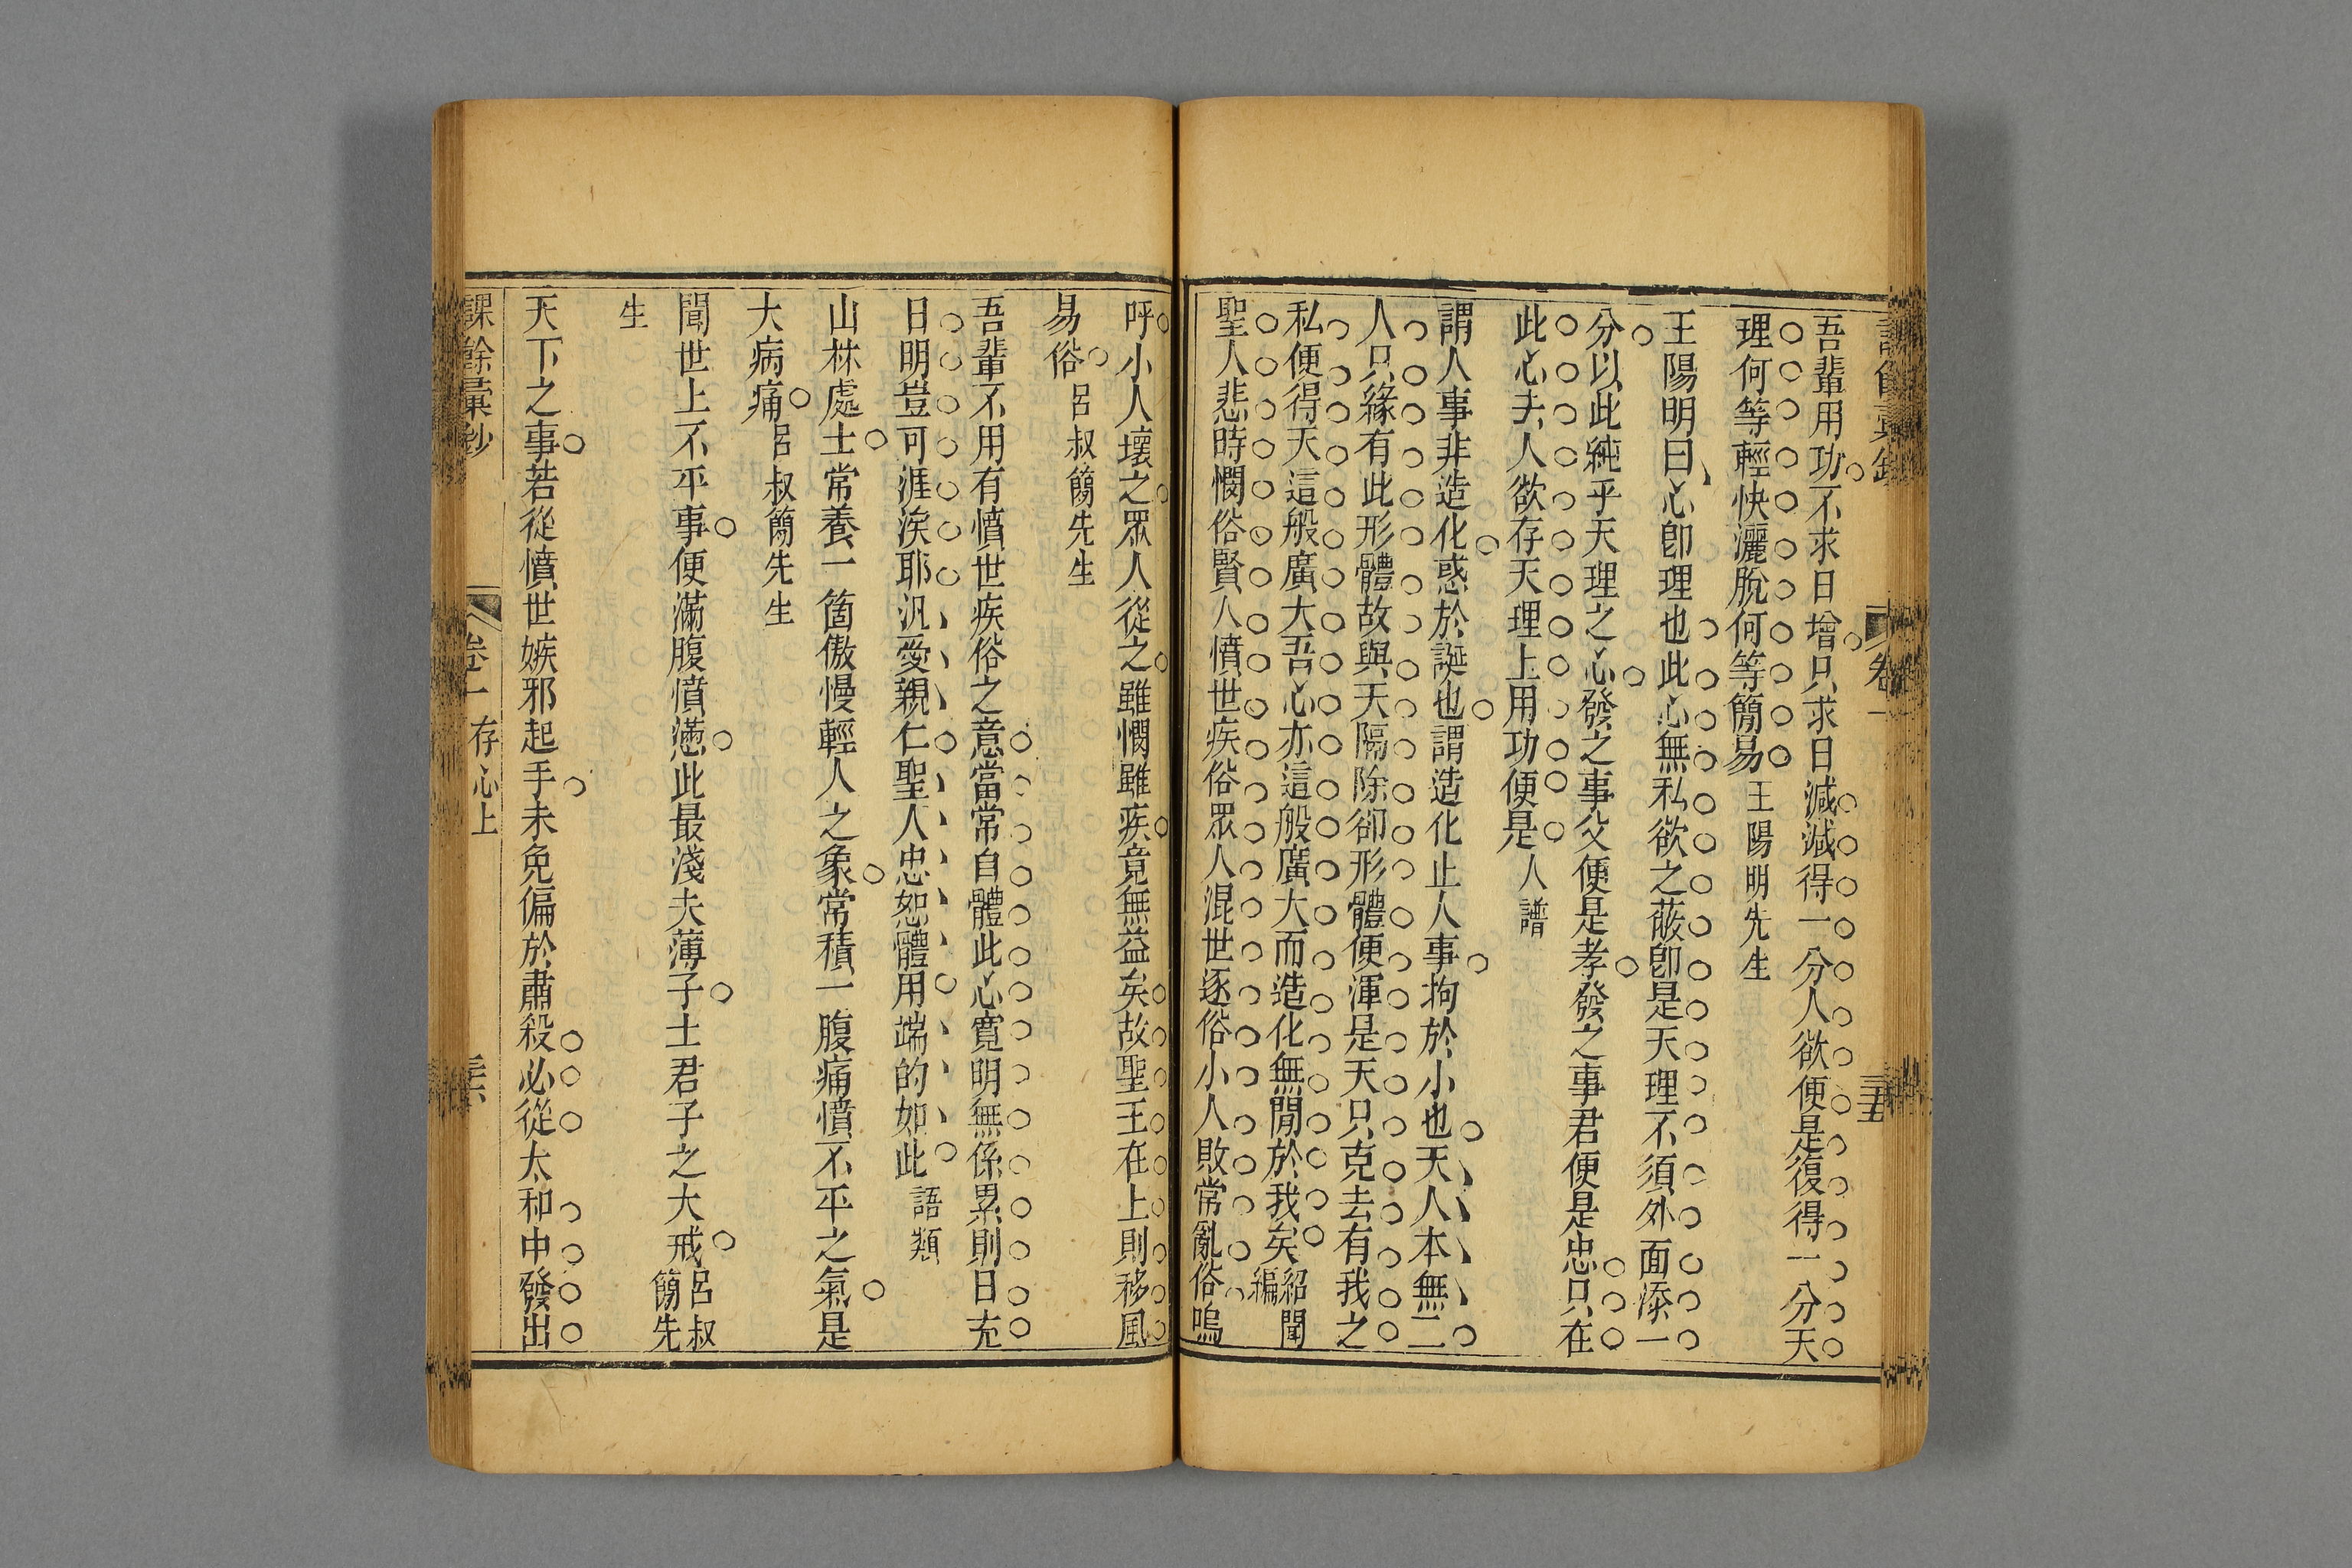 吾輩用功不求日增只求日減減得一分人欲便是復得一分天
理何等輕快灑脫何等簡易王陽明先生
王陽明曰心卽理也此心無私欲之蔽卽是天理不須外面添一
分以此純乎天理之心發之事父便是孝發之事君便是忠只在
此心去人欲存天理上用功便是人譜
謂人事非造化惑於誕也謂造化止人事拘於小也天人本無二
人只緣有此形體故與天隔除卻形體便渾是天只克去有我之
私便得天這般廣大吾心亦這般廣大而造化無閒於我矣紹聞編
聖人悲時憫俗賢人憤世疾俗眾人混世逐俗小人敗常亂俗嗚
呼小人壞之眾人從之雖憫雖疾竟無益矣故聖王在上則移風
易俗呂叔簡先生
吾輩不用有憤世疾俗之意當常自體此心寬明無係累則日充
日明豈可涯涘耶汎愛親仁聖人忠恕體用端的如此語類
山林處士常養一箇傲慢輕人之象常積一腹痛憤不平之氣是
大病痛呂叔簡先生
聞世上不平事便滿腹憤懣此最淺夫薄子士君子之大戒呂叔簡先
生
天下之事若從憤世嫉邪起手未免偏於肅殺必從太和中發出
課餘彙鈔 卷一 存心上